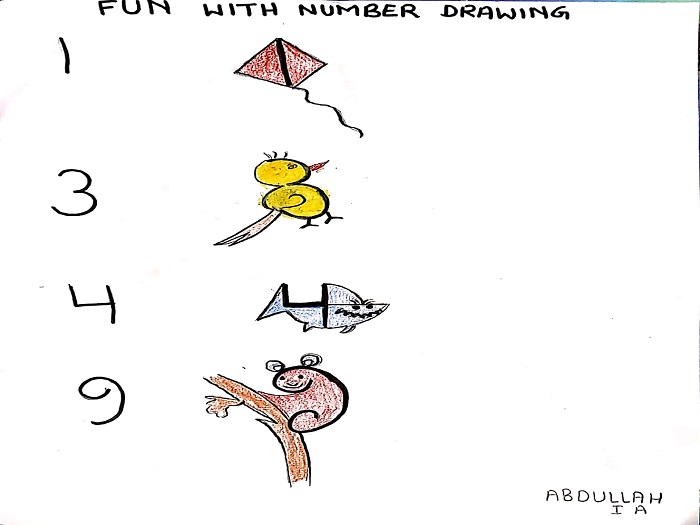 FUN WITH NUMBER DRAWING
1
3
4
4
9
ABDULLAH
I A